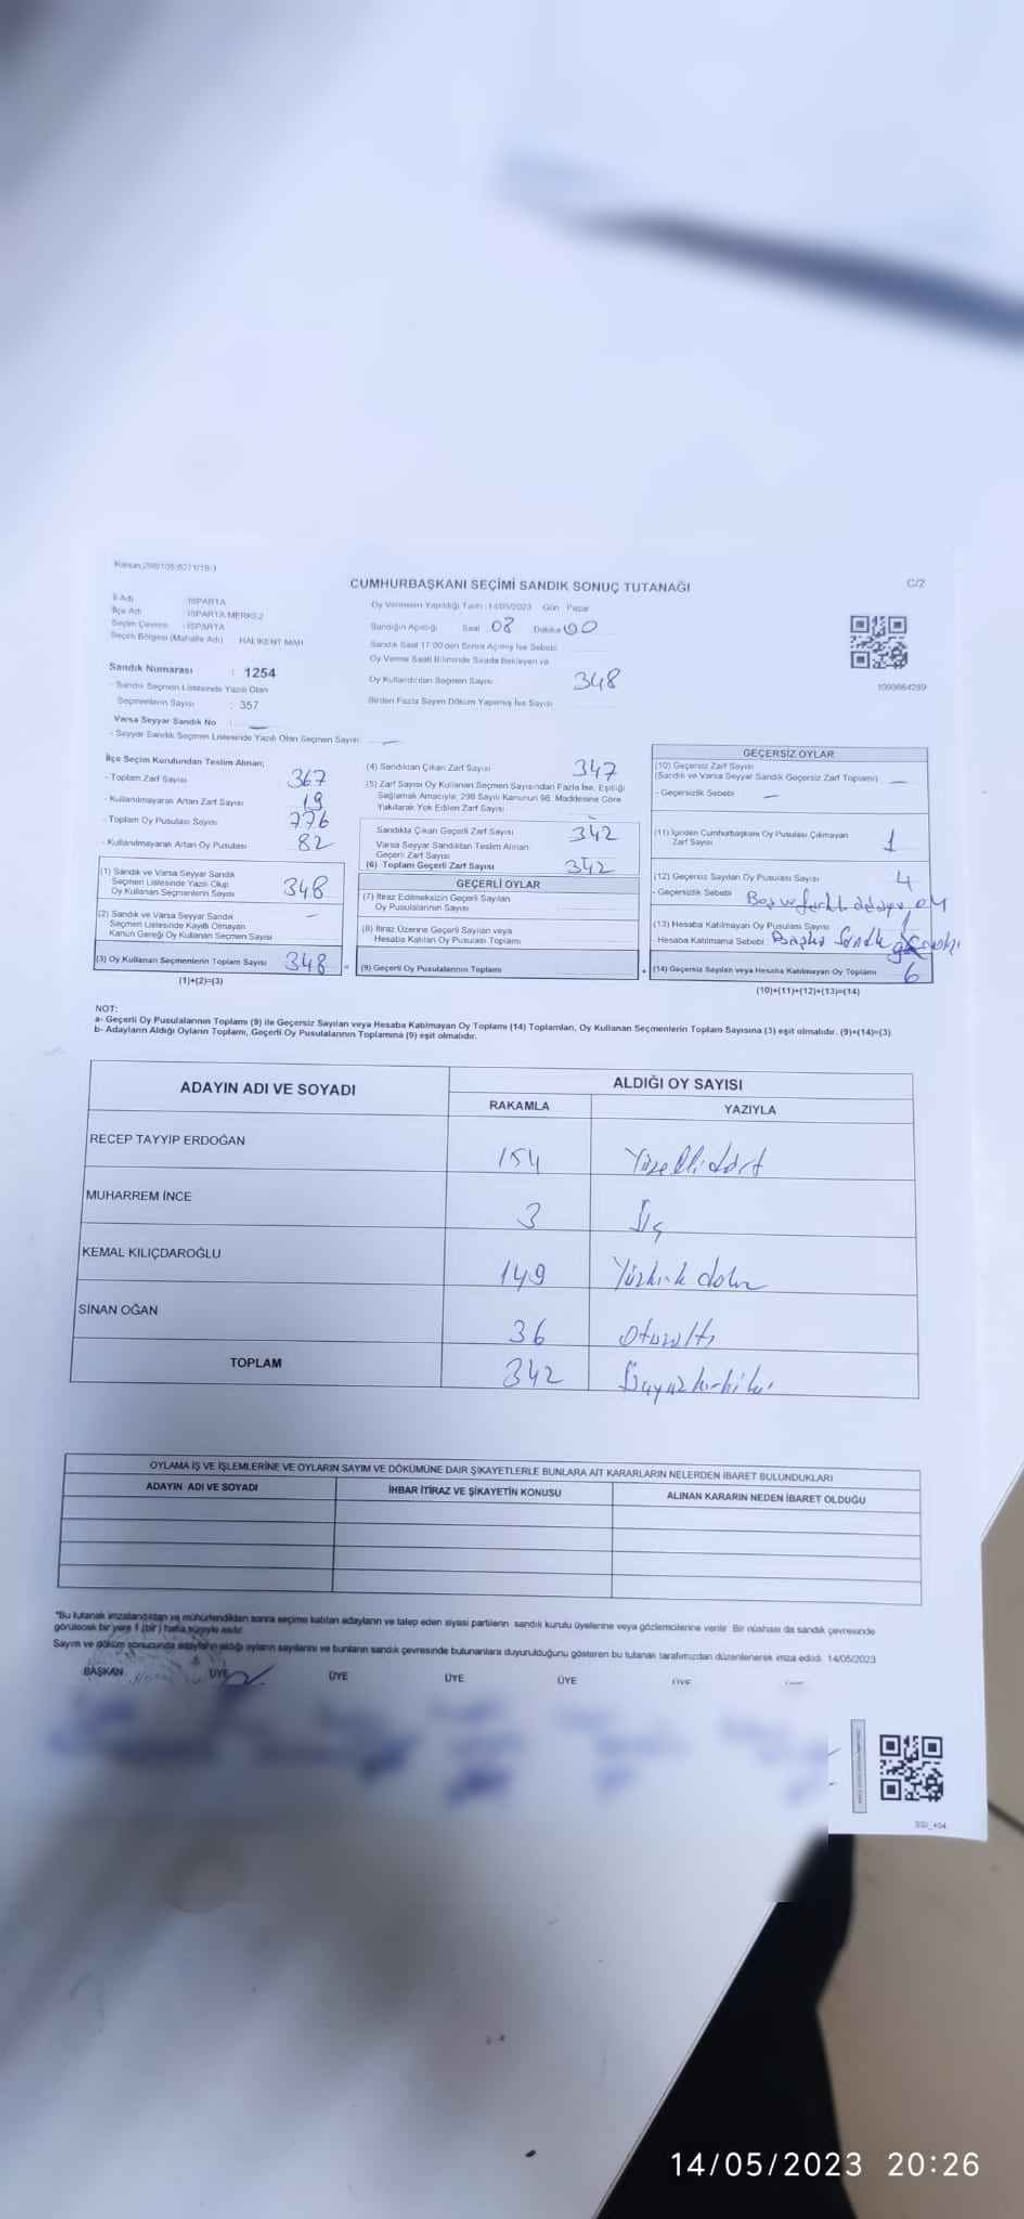 CUMHURBAŞKANI SEÇİMİ SANDIK SONUÇ TUTANAĞI
C/2
İl Adı : ISPARTA
İlçe Adı : ISPARTA MERKEZ
Seçim Çevresi : ISPARTA
Seçim Bölgesi (Mahalle Adı) : HALIKENT MAH
Sandık Numarası : 1254
- Sandık Seçmen Listesinde Yazılı Olan
Seçmenlerin Sayısı : 357
Varsa Seyyar Sandık No : —
- Seyyar Sandık Seçmen Listesinde Yazılı Olan Seçmen Sayısı : —
Oy Vermenin Yapıldığı Tarih : 14/05/2023 Gün : Pazar
Sandığın Açıldığı Saat : 08 Dakika : 00
Sandık Saat 17:00'den Sonra Açılmış İse Sebebi
Oy Verme Saati Bitiminde Sırada Bekleyen ve
Oy Kullandırılan Seçmen Sayısı 348
Birden Fazla Sayım Döküm Yapılmış İse Sayısı
İlçe Seçim Kurulundan Teslim Alınan;
- Toplam Zarf Sayısı 367
- Kullanılmayarak Artan Zarf Sayısı 19
- Toplam Oy Pusulası Sayısı 776
- Kullanılmayarak Artan Oy Pusulası 82
(1) Sandık ve Varsa Seyyar Sandık
Seçmen Listesinde Yazılı Olup
Oy Kullanan Seçmenlerin Sayısı 348
(2) Sandık ve Varsa Seyyar Sandık
Seçmen Listesinde Kayıtlı Olmayan
Kanun Gereği Oy Kullanan Seçmen Sayısı —
(3) Oy Kullanan Seçmenlerin Toplam Sayısı 348
(1)+(2)=(3)
(4) Sandıktan Çıkan Zarf Sayısı 347
(5) Zarf Sayısı Oy Kullanan Seçmen Sayısından Fazla İse, Eşitliği
Sağlamak Amacıyla, 298 Sayılı Kanunun 98. Maddesine Göre
Yakılarak Yok Edilen Zarf Sayısı —
Sandıkta Çıkan Geçerli Zarf Sayısı 342
Varsa Seyyar Sandıktan Teslim Alınan
Geçerli Zarf Sayısı
(6) Toplam Geçerli Zarf Sayısı 342
GEÇERLİ OYLAR
(7) İtiraz Edilmeksizin Geçerli Sayılan
Oy Pusulalarının Sayısı
(8) İtiraz Üzerine Geçerli Sayılan veya
Hesaba Katılan Oy Pusulası Toplamı
(9) Geçerli Oy Pusulalarının Toplamı
GEÇERSİZ OYLAR
(10) Geçersiz Zarf Sayısı
(Sandık ve Varsa Seyyar Sandık Geçersiz Zarf Toplamı) —
- Geçersizlik Sebebi —
(11) İçinden Cumhurbaşkanı Oy Pusulası Çıkmayan
Zarf Sayısı 1
(12) Geçersiz Sayılan Oy Pusulası Sayısı 4
- Geçersizlik Sebebi
(13) Hesaba Katılmayan Oy Pusulası Sayısı 1
Hesaba Katılmama Sebebi Başka Sandık
(14) Geçersiz Sayılan veya Hesaba Katılmayan Oy Toplamı 6
(10)+(11)+(12)+(13)=(14)
NOT:
a- Geçerli Oy Pusulalarının Toplamı (9) ile Geçersiz Sayılan veya Hesaba Katılmayan Oy Toplamı (14) Toplamları, Oy Kullanan Seçmenlerin Toplam Sayısına (3) eşit olmalıdır. (9)+(14)=(3)
b- Adayların Aldığı Oyların Toplamı, Geçerli Oy Pusulalarının Toplamına (9) eşit olmalıdır.
ADAYIN ADI VE SOYADI
ALDIĞI OY SAYISI
RAKAMLA YAZIYLA
RECEP TAYYİP ERDOĞAN 154 Yüzellidört
MUHARREM İNCE 3 Üç
KEMAL KILIÇDAROĞLU 149 Yüzkırk dokuz
SİNAN OĞAN 36 Otuzaltı
TOPLAM 342 Üçyüzkırkiki
OYLAMA İŞ VE İŞLEMLERİNE VE OYLARIN SAYIM VE DÖKÜMÜNE DAİR ŞİKAYETLERLE BUNLARA AİT KARARLARIN NELERDEN İBARET BULUNDUKLARI
ADAYIN ADI VE SOYADI
İHBAR İTİRAZ VE ŞİKAYETİN KONUSU
ALINAN KARARIN NEDEN İBARET OLDUĞU
"Bu tutanak imzalandıktan ve mühürlendikten sonra seçime katılan adayların ve talep eden siyasi partilerin sandık kurulu üyelerine veya gözlemcilerine verilir. Bir nüshası da sandık çevresinde
görülecek bir yere 1 (bir) hafta süreyle asılır.
Sayım ve döküm sonucunda adayların aldığı oyların sayılarını ve bunların sandık çevresinde bulunanlara duyurulduğunu gösteren bu tutanak tarafımızdan düzenlenerek imza edildi. 14/05/2023
BAŞKAN ÜYE ÜYE ÜYE ÜYE ÜYE
14/05/2023 20:26